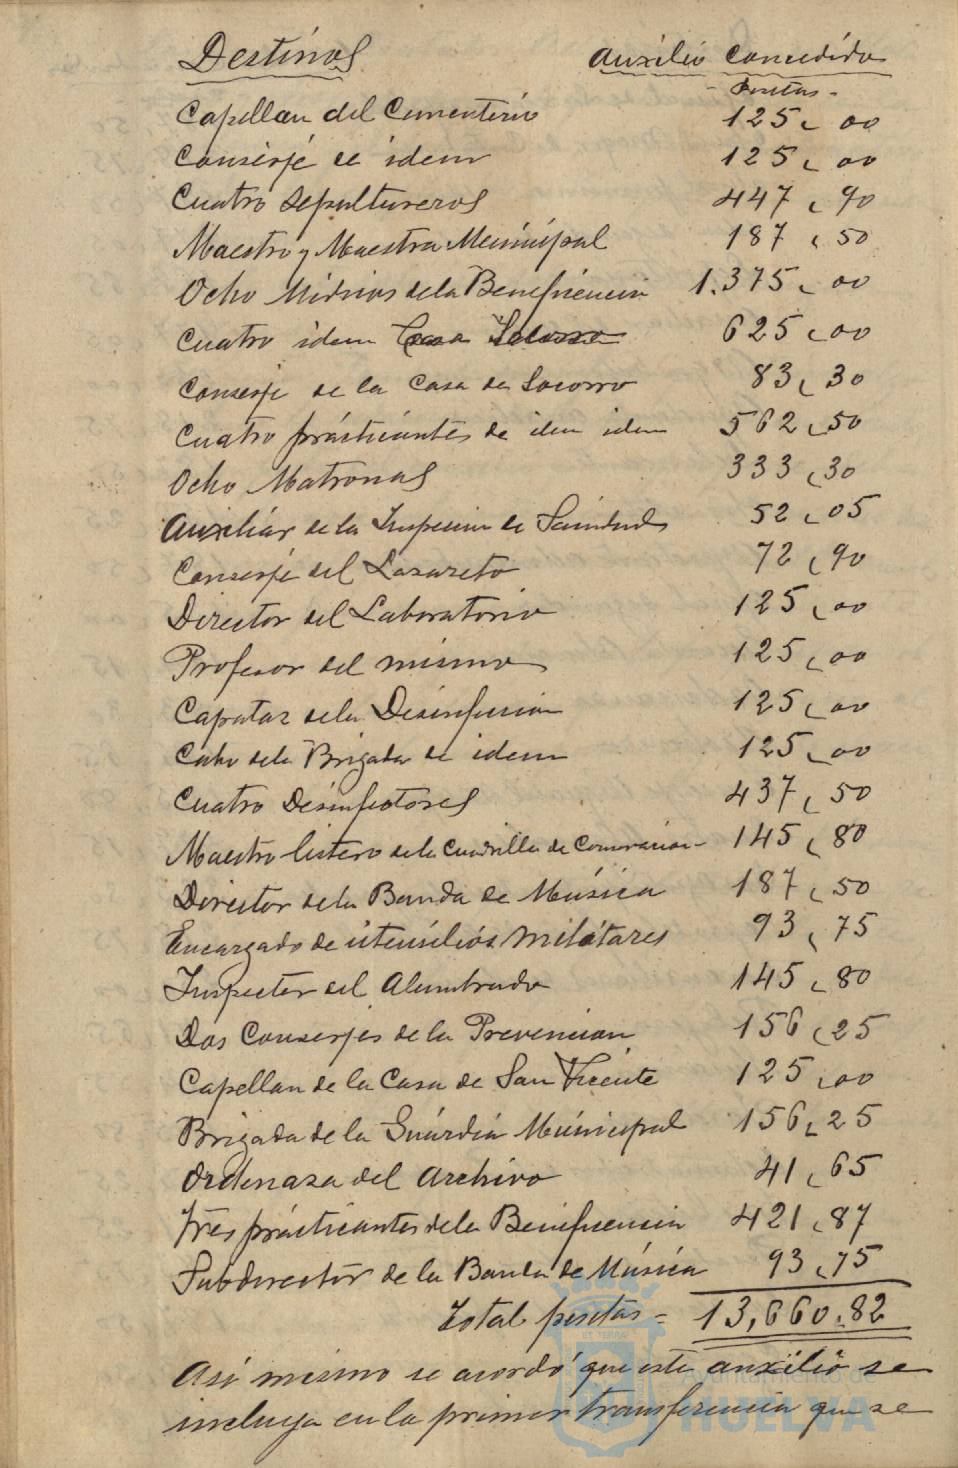 Destinos Auxilio Concedido
- Pesetas -
Capellan del Cementerio 125,00
Conserje de idem 125,00
Cuatro Sepultureros 447,90
Maestro y Maestra Municipal 187,50
Ocho Médicos de la Beneficencia 1.375,00
Cuatro idem Casa Socorro 625,00
Conserje de la Casa de Socorro 83,30
Cuatro prácticantes de idem idem 562,50
Ocho Matronas 333,30
Auxiliar de la Inspeccion de Sanidad 52,05
Conserje del Lazareto 72,90
Director del Laboratorio 125,00
Profesor del mismo 125,00
Capataz de la Desinfeccion 125,00
Cabo de la Brigada de idem 125,00
Cuatro Desinfectores 437,50
Maestro listero de la Cuadrilla de 145,80
Director de la Banda de Música 187,50
Encargado de utensilios militares 93,75
Inspector del Alumbrado 145,80
Dos Conserjes de la Prevencion 156,25
Capellan de la Casa de San Vicente 125,00
Brigada de la Guardia Municipal 156,25
Ordenaza del Archivo 41,65
Tres prácticantes de la Beneficencia 421,87
Subdirector de la Banda de Música 93,75
Total pesetas = 13,660.82
Así mismo se acordó que este auxilio se
incluya en la primer transferencia que se
Ayuntamiento de
HUELVA